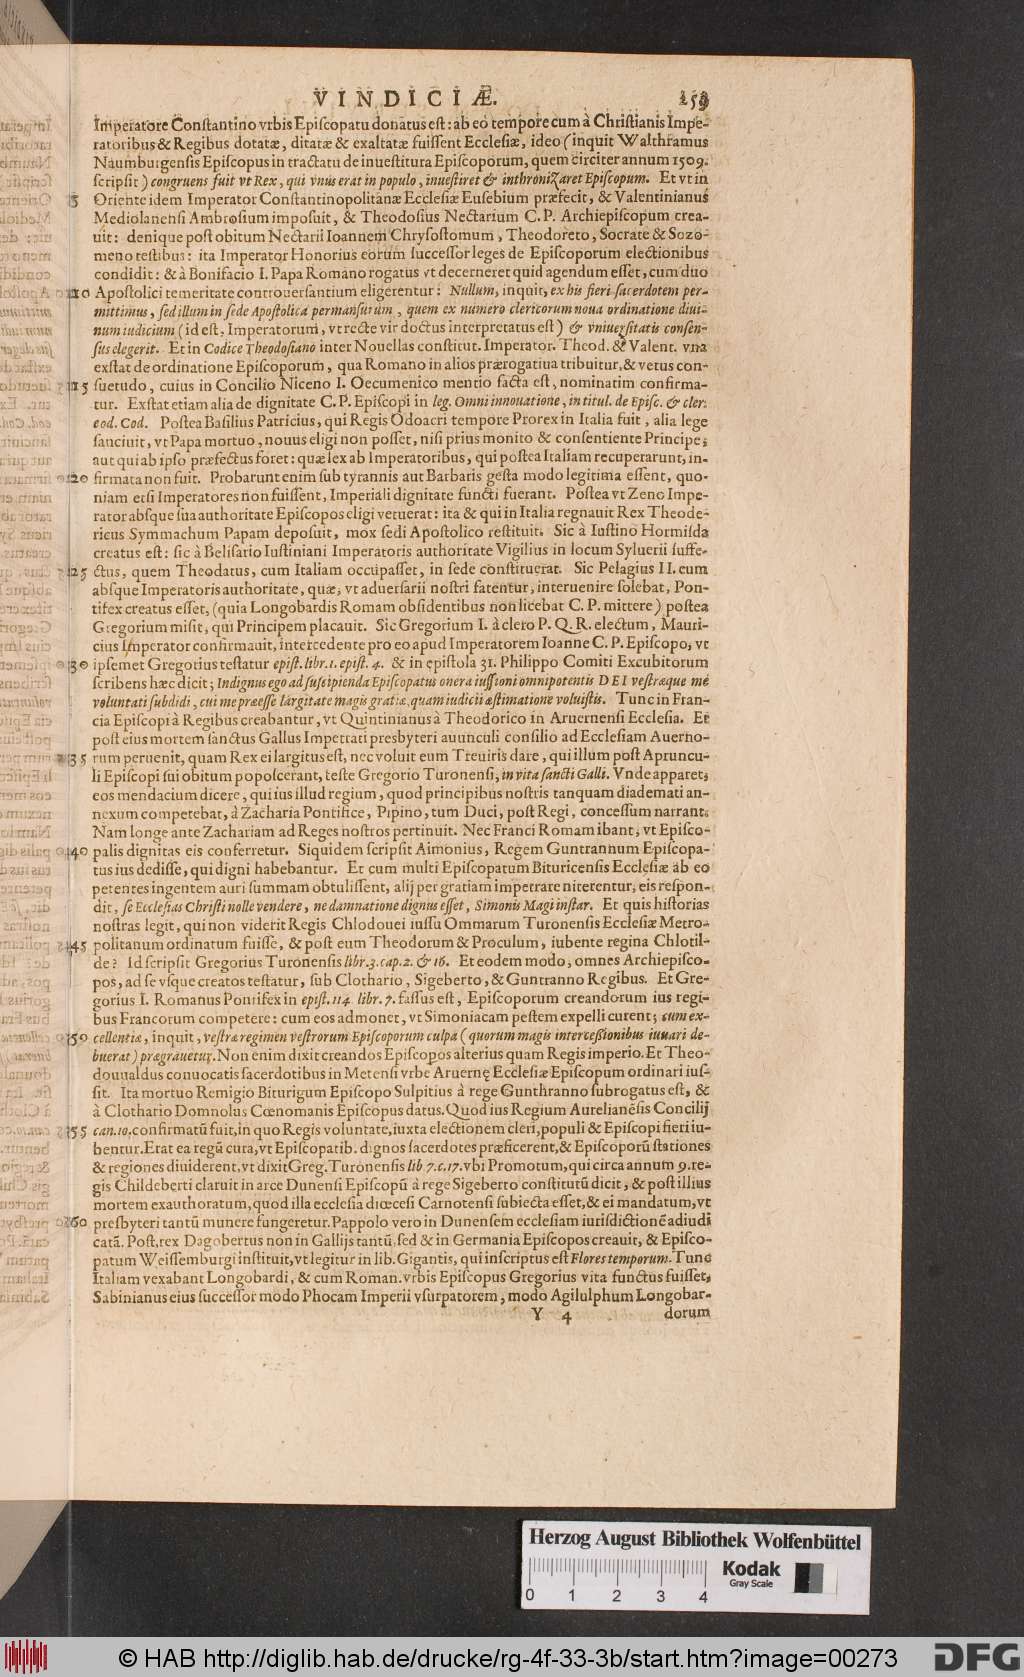 VINDICIÆ. 259
Imperatore Constantino vrbis Episcopatu donatus est: ab eo tempore cum à Christianis Impe-
ratoribus & Regibus dotatæ, ditatæ & exaltatæ fuissent Ecclesiæ, ideo (inquit Walthramus
Naumburgensis Episcopus in tractatu de inuestitura Episcoporum, quem circiter annum 1509.
scripsit) congruens fuit vt Rex, qui vnus erat in populo, inuestiret & inthronizaret Episcopum. Et vt in
5 Oriente idem Imperator Constantinopolitanæ Ecclesiæ Eusebium præfecit, & Valentinianus
Mediolanensi Ambrosium imposuit, & Theodosius Nectarium C. P. Archiepiscopum crea-
uit: denique post obitum Nectarii Ioannem Chrysostomum, Theodoreto, Socrate & Sozo-
meno testibus: ita Imperator Honorius eorum successor leges de Episcoporum electionibus
condidit: & à Bonifacio I. Papa Romano rogatus vt decerneret quid agendum esset, cum duo
10 Apostolici temeritate controuersantium eligerentur: Nullum, inquit, ex his fieri sacerdotem per-
mittimus, sed illum in sede Apostolica permansurum, quem ex numero clericorum noua ordinatione diui-
num iudicium (id est, Imperatorum, vt recte vir doctus interpretatus est) & vniuersitatis consen-
sus elegerit. Et in Codice Theodosiano inter Nouellas constitut. Imperator. Theod. & Valent. vna
exstat de ordinatione Episcoporum, qua Romano in alios prærogatiua tribuitur, & vetus con-
15 suetudo, cuius in Concilio Niceno I. Oecumenico mentio facta est, nominatim confirma-
tur. Exstat etiam alia de dignitate C. P. Episcopi in leg. Omni innouatione, in titul. de Episc. & cler.
eod. Cod. Postea Basilius Patricius, qui Regis Odoacri tempore Prorex in Italia fuit, alia lege
sanciuit, vt Papa mortuo, nouus eligi non posset, nisi prius monito & consentiente Principe;
aut qui ab ipso præfectus foret: quæ lex ab Imperatoribus, qui postea Italiam recuperarunt, in-
20 firmata non fuit. Probarunt enim sub tyrannis aut Barbaris gesta modo legitima essent, quo-
niam etsi Imperatores non fuissent, Imperiali dignitate functi fuerant. Postea vt Zeno Impe-
rator absque sua authoritate Episcopos eligi vetuerat: ita & qui in Italia regnauit Rex Theode-
ricus Symmachum Papam deposuit, mox sedi Apostolico restituit. Sic à Iustino Hormisda
creatus est: sic à Belisario Iustiniani Imperatoris authoritate Vigilius in locum Syluerii suffe-
25 ctus, quem Theodatus, cum Italiam occupasset, in sede constituerat. Sic Pelagius II. cum
absque Imperatoris authoritate, quæ, vt aduersarii nostri fatentur, interuenire solebat, Pon-
tifex creatus esset, (quia Longobardis Romam obsidentibus non licebat C. P. mittere) postea
Gregorium misit, qui Principem placauit. Sic Gregorium I. à clero P. Q. R. electum, Mauri-
cius Imperator confirmauit, intercedente pro eo apud Imperatorem Ioanne C. P. Episcopo, vt
30 ipsemet Gregorius testatur epist. libr. 1. epist. 4. & in epistola 31. Philippo Comiti Excubitorum
scribens hæc dicit; Indignus ego ad suscipienda Episcopatus onera iussioni omnipotentis DEI vestræque me
voluntati subdidi, cui me præesse largitate magis gratiæ, quam iudicii æstimatione voluistis. Tunc in Fran-
cia Episcopi à Regibus creabantur, vt Quintinianus à Theodorico in Aruernensi Ecclesia. Et
post eius mortem sanctus Gallus Impetrati presbyteri auunculi consilio ad Ecclesiam Auerno-
35 rum peruenit, quam Rex ei largitus est, nec voluit eum Treuiris dare, qui illum post Apruncu-
li Episcopi sui obitum poposcerant, teste Gregorio Turonensi, in vita sancti Galli. Vnde apparet,
eos mendacium dicere, qui ius illud regium, quod principibus nostris tanquam diademati an-
nexum competebat, à Zacharia Pontifice, Pipino, tum Duci, post Regi, concessum narrant.
Nam longe ante Zachariam ad Reges nostros pertinuit. Nec Franci Romam ibant, vt Episco-
40 palis dignitas eis conferretur. Siquidem scripsit Aimonius, Regem Guntrannum Episcopa-
tus ius dedisse, qui digni habebantur. Et cum multi Episcopatum Bituricensis Ecclesiæ ab eo
petentes ingentem auri summam obtulissent, alij per gratiam impetrare niterentur, eis respon-
dit, se Ecclesias Christi nolle vendere, ne damnatione dignus esset, Simonis Magi instar. Et quis historias
nostras legit, qui non viderit Regis Chlodouei iussu Ommarum Turonensis Ecclesiæ Metro-
45 politanum ordinatum fuisse, & post eum Theodorum & Proculum, iubente regina Chlotil-
de? Id scripsit Gregorius Turonensis libr. 3. cap. 2. & 16. Et eodem modo, omnes Archiepisco-
pos, ad se vsque creatos testatur, sub Clothario, Sigeberto, & Guntranno Regibus. Et Gre-
gorius I. Romanus Pontifex in epist. 114. libr. 7. fassus est, Episcoporum creandorum ius regi-
bus Francorum competere: cum eos admonet, vt Simoniacam pestem expelli curent; cum ex-
50 cellentia, inquit, vestræ regimen vestrorum Episcoporum culpa (quorum magis intercessionibus iuuari de-
buerat) prægrauetur. Non enim dixit creandos Episcopos alterius quam Regis imperio. Et Theo-
douualdus conuocatis sacerdotibus in Metensi vrbe Aruernę Ecclesiæ Episcopum ordinari ius-
sit. Ita mortuo Remigio Biturigum Episcopo Sulpitius à rege Gunthranno subrogatus est, &
à Clothario Domnolus Cœnomanis Episcopus datus. Quod ius Regium Aurelianēsis Concilij
55 can. 10. confirmatū fuit, in quo Regis voluntate, iuxta electionem cleri, populi & Episcopi fieri iu-
bentur. Erat ea regū cura, vt Episcopatib. dignos sacerdotes præficerent, & Episcoporū stationes
& regiones diuiderent, vt dixit Greg. Turonensis lib 7. c. 17. vbi Promotum, qui circa annum 9. re-
gis Childeberti claruit in arce Dunensi Episcopū à rege Sigeberto constitutū dicit, & post illius
mortem exauthoratum, quod illa ecclesia diœcesi Carnotensi subiecta esset, & ei mandatum, vt
60 presbyteri tantū munere fungeretur. Pappolo vero in Dunensem ecclesiam iurisdictionē adiudi
catā. Post, rex Dagobertus non in Gallijs tantū, sed & in Germania Episcopos creauit, & Episco-
patum Weissemburgi instituit, vt legitur in lib. Gigantis, qui inscriptus est Flores temporum. Tunc
Italiam vexabant Longobardi, & cum Roman. vrbis Episcopus Gregorius vita functus fuisset,
Sabinianus eius successor modo Phocam Imperii vsurpatorem, modo Agilulphum Longobar-
Y 4 dorum
Herzog August Bibliothek Wolfenbüttel
0 1 2 3 4
Kodak
Gray Scale
© HAB http://diglib.hab.de/drucke/rg-4f-33-3b/start.htm?image=00273
DFG